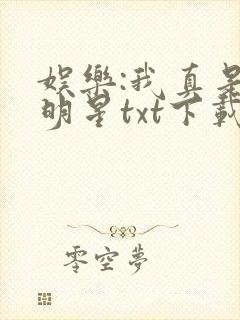 娱樂:我真是
明星txt下載
零空夢